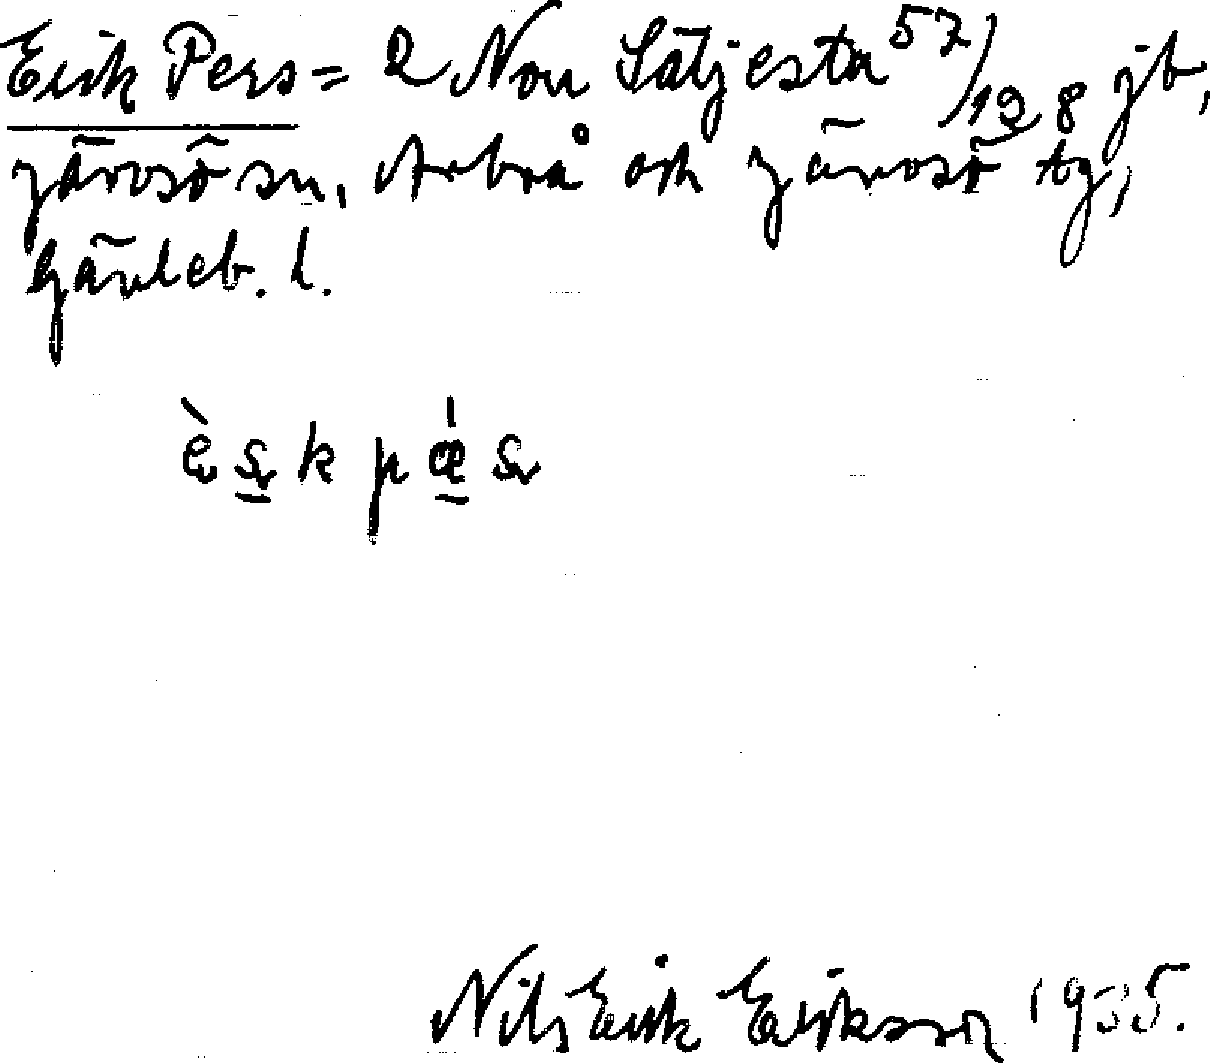 Erik Pers = 2 Nor Sätjesta 57/128 jb,
Järvsö sn, Arbrå och Järvsö tg,
Gävleb. l.
Nils Erik Eriksson 1935.